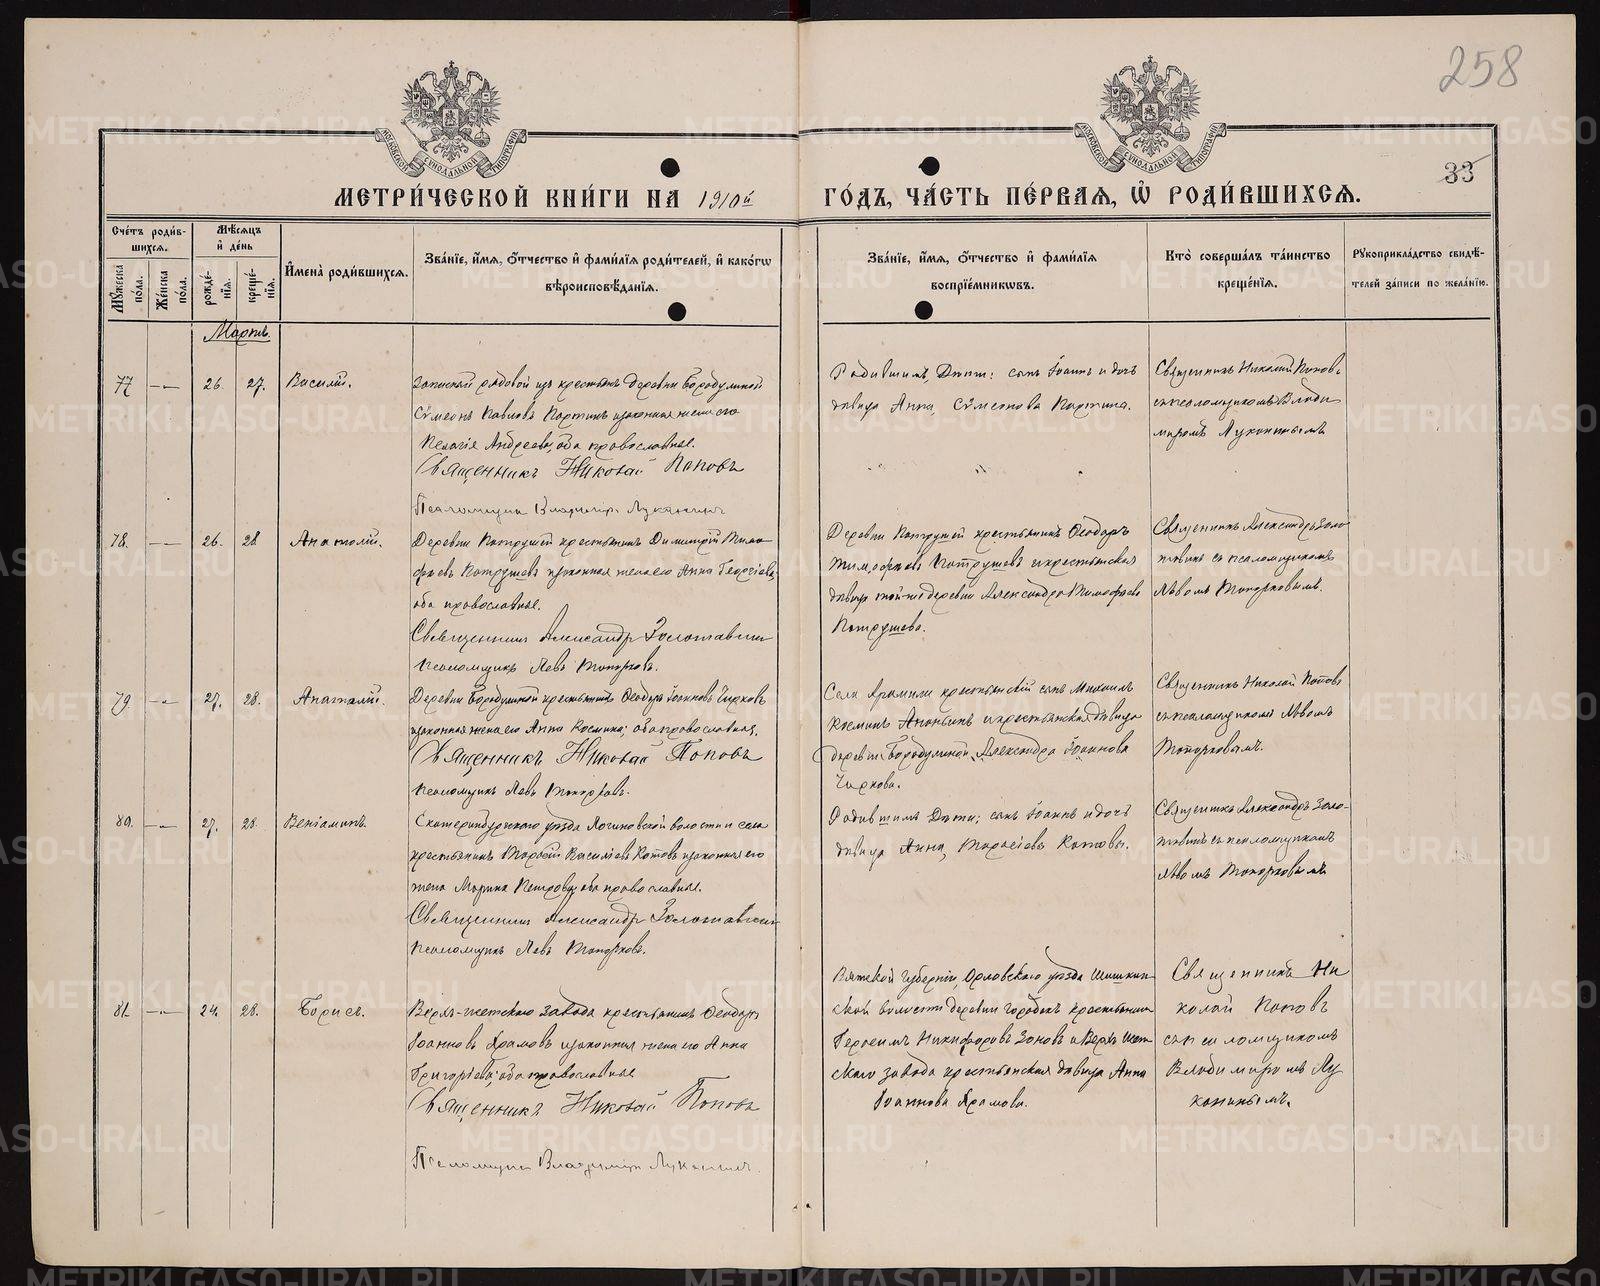 258
33
МЕТРИ́ЧЕСКОЙ КНИ́ГИ НА 1910й ГО́ДЪ, ЧА́СТЬ ПЕ́РВАѦ, Ѡ҆ РОДИ́ВШИХСѦ.
Сче́тъ роди́в-
шихсѧ.
Мѣ́сѧцъ
и҆ де́нь
Мꙋ́жеска
по́ла.
Же́нска
по́ла.
рожде́-
нїѧ.
креще́-
нїѧ.
И҆мена̀ роди́вшихсѧ.
Зва́нїе, и҆́мѧ, ѻ҆́тчество и҆ фами́лїѧ роди́телей, и҆ како́гѡ
вѣроисповѣ́данїѧ.
Зва́нїе, и҆́мѧ, ѻ҆́тчество и҆ фами́лїѧ
воспрїе́мникѡвъ.
Кто̀ соверша́лъ та́инство
креще́нїѧ.
Рꙋкоприкла́дство свидѣ́-
телей за́писи по жела́нїю.
Мартъ.
77 — 26. 27. Василій.
Запасный рядовой изъ крестьянъ деревни Бородулиной
Сѵмеонъ Павловъ Партинъ и законная жена его
Пелагія Андреева, оба православные.
Священникъ Николай Поповъ
Псаломщикъ Владимір Луканинъ
Родившимъ, дѣти: сынъ Іоаннъ и дочь
дѣвица Анна, Сѵмеонова Партина.
Священникъ Николай Поповъ
съ псаломщикомъ Влади
міромъ Луканинымъ
78. — 26. 28 Анатолій.
Деревни Патрушей крестьянинъ Димитрій Тимо
фѣевъ Патрушевъ и законная жена его Анна Георгіева,
оба православные.
Священникъ Александр Золотавинъ
Псаломщикъ Левъ Топорковъ.
Деревни Патрушей крестьянинъ Ѳеодоръ
Тимофѣевъ Патрушевъ и крестьянская
дѣвица той же деревни Александра Тимофѣева
Патрушева.
Священникъ Александръ Золо
тавинъ съ псаломщикомъ
Львомъ Топорковымъ.
79 — 27. 28. Анатолій.
Деревни Бородулиной крестьянинъ Ѳеодоръ Іоанновъ Чирковъ
и законная жена его Анна Космина; оба православные.
Священникъ Николай Поповъ
Псаломщикъ Левъ Топорковъ.
Села Арамили крестьянскій сынъ Михаилъ
Косминъ Ананьинъ и крестьянская дѣвица
деревни Бородулиной, Александра Іоаннова
Чиркова.
Священникъ Николай Поповъ
съ псаломщикомъ Львомъ
Топорковымъ.
80. — 27. 28. Веніаминъ.
Екатеринбургскаго уѣзда Логиновской волости и села
крестьянинъ Тарасій Васильевъ Котовъ и законная его
жена Марина Петрова, оба православные.
Священникъ Александр Золотавинъ
Псаломщикъ Левъ Топорковъ.
Родившимъ Дѣти; сынъ Іоаннъ и дочь
дѣвица Анна, Тарасіевы Котовы.
Священникъ Александръ Золо-
тавинъ съ псаломщикомъ
Львомъ Топорковымъ
81. — 24. 28. Борисъ.
Верхъ-Исетскаго завода крестьянинъ Ѳеодоръ
Іоанновъ Храмовъ и законная жена его Анна
Григоріева; оба православные
Священникъ Николай Поповъ
Псаломщикъ Владимір Луканинъ.
Вятской губерніи, Орловскаго уѣзда
ской волости деревни Городокъ крестьянинъ
Герасимъ Никифоровъ Зоновъ и Верхъ Исет
скаго завода крестьянская дѣвица Анна
Іоаннова Храмова.
Священникъ Ни
колай Поповъ
съ псаломщикомъ
Владиміромъ Лу
канинымъ.
METRIKI.GASO-URAL.RU